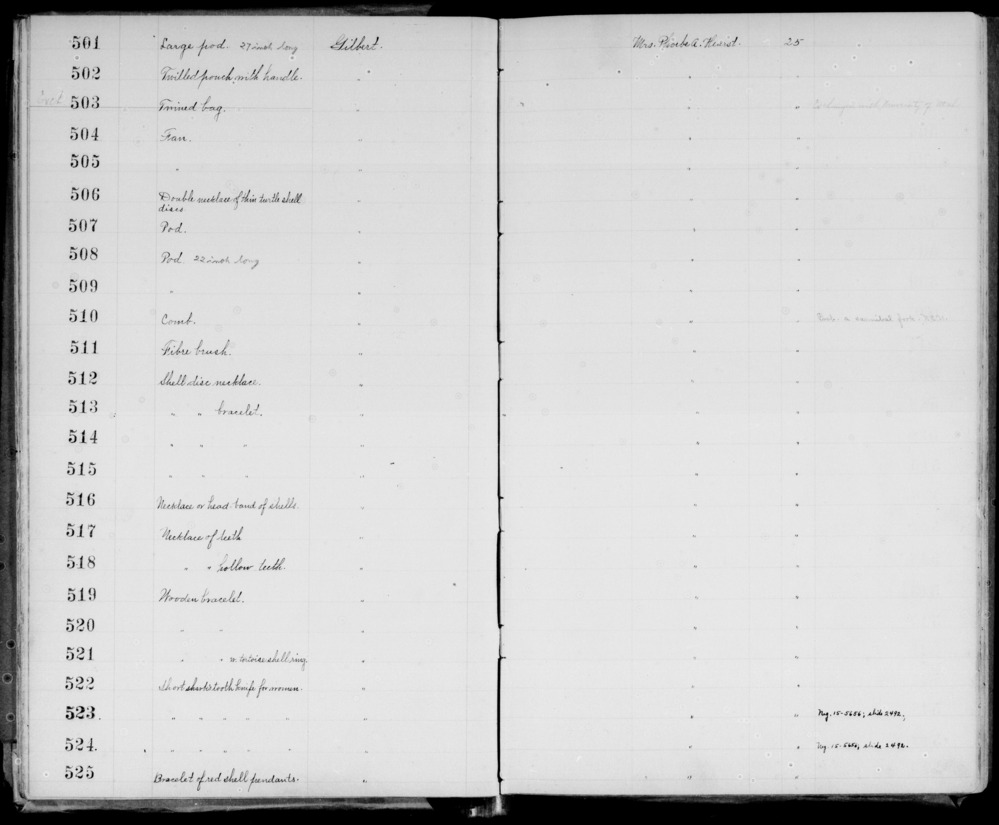 501 Large pod. 27 inch long Gilbert. Mrs. Phoebe A. Hearst. 25
502 Twilled pouch with handle. " " "
503 Twined bag. " " " Exchanged with University of
504 Fan. " " "
505 " " " "
506 Double necklace of thin turtle shell " " "
discs.
507 Pod. " " "
508 Pod. 22 inch long " " "
509 " " " "
510 Comb. " " "
511 Fibre brush. " " "
512 Shell disc necklace. " " "
513 " " bracelet. " " "
514 " " " " " "
515 " " " " " "
516 Necklace or head-band of shells. " " "
517 Necklace of teeth " " "
518 " " hollow teeth. " " "
519 Wooden bracelet. " " "
520 " " " " "
521 " " w. tortoise shell ring. " " "
522 Short shark's tooth knife for women. " " "
523. " " " " " " " " Neg. 15-5656; slide 2492;
524. " " " " " " " " Neg. 15-5656, slide 2492.
525 Bracelet of red shell pendants. " " "